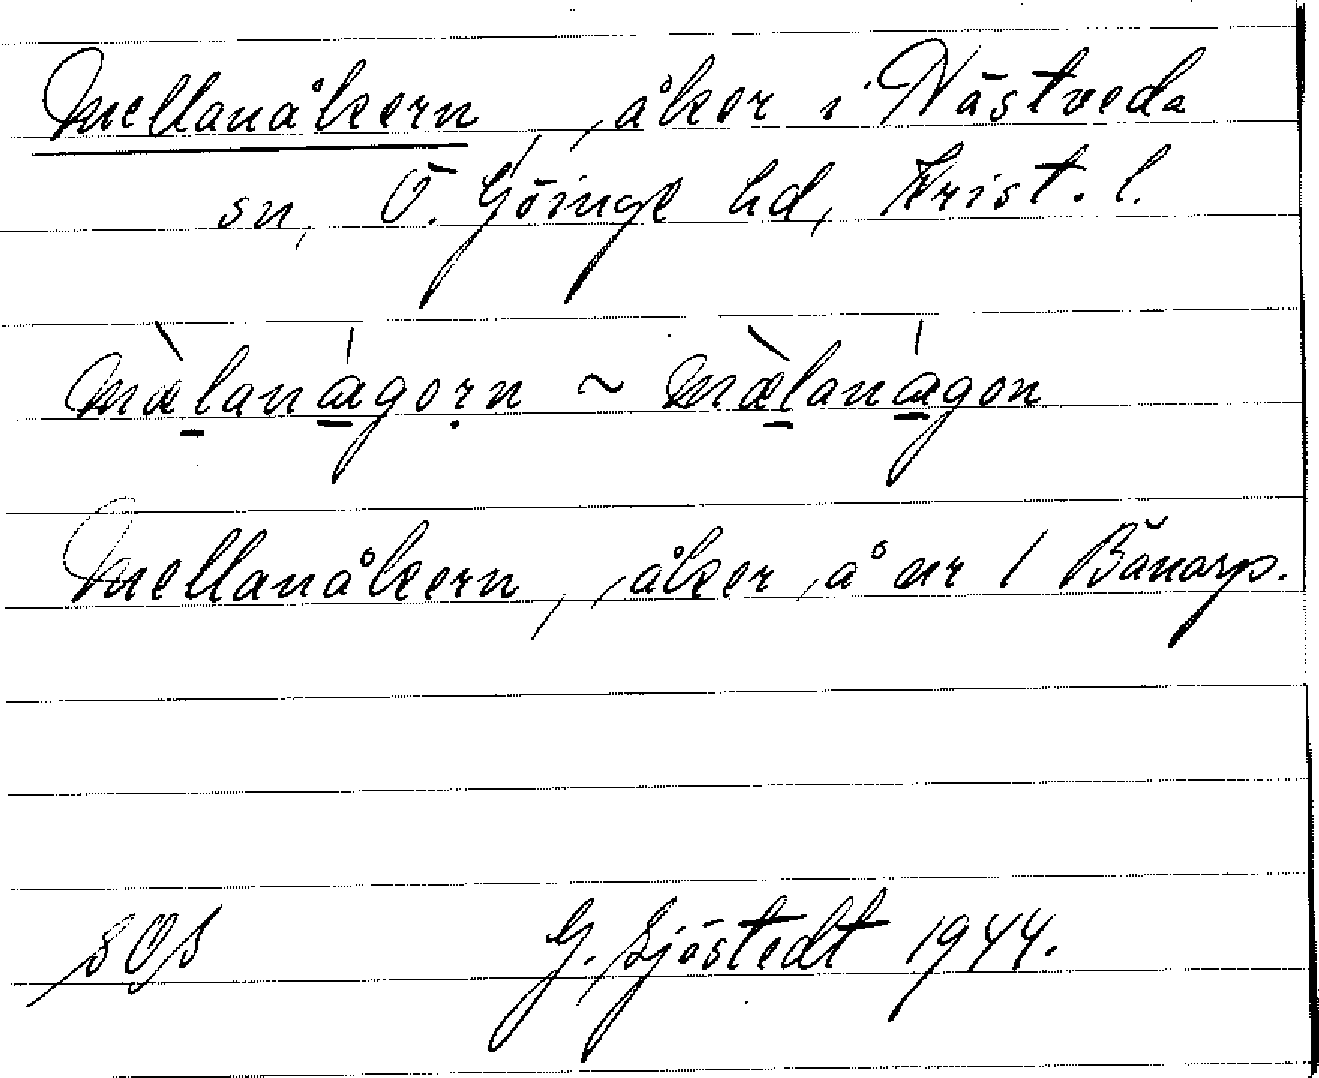 Mellanåkern, åker i Nästveda
sn, Ö. Göinge hd, Krist. l.
mæ̀lanágorn ~ mæ̀lanágon
Mellanåkern, åker å nr 1 Bånarp.
SOS G. Sjöstedt 1944.